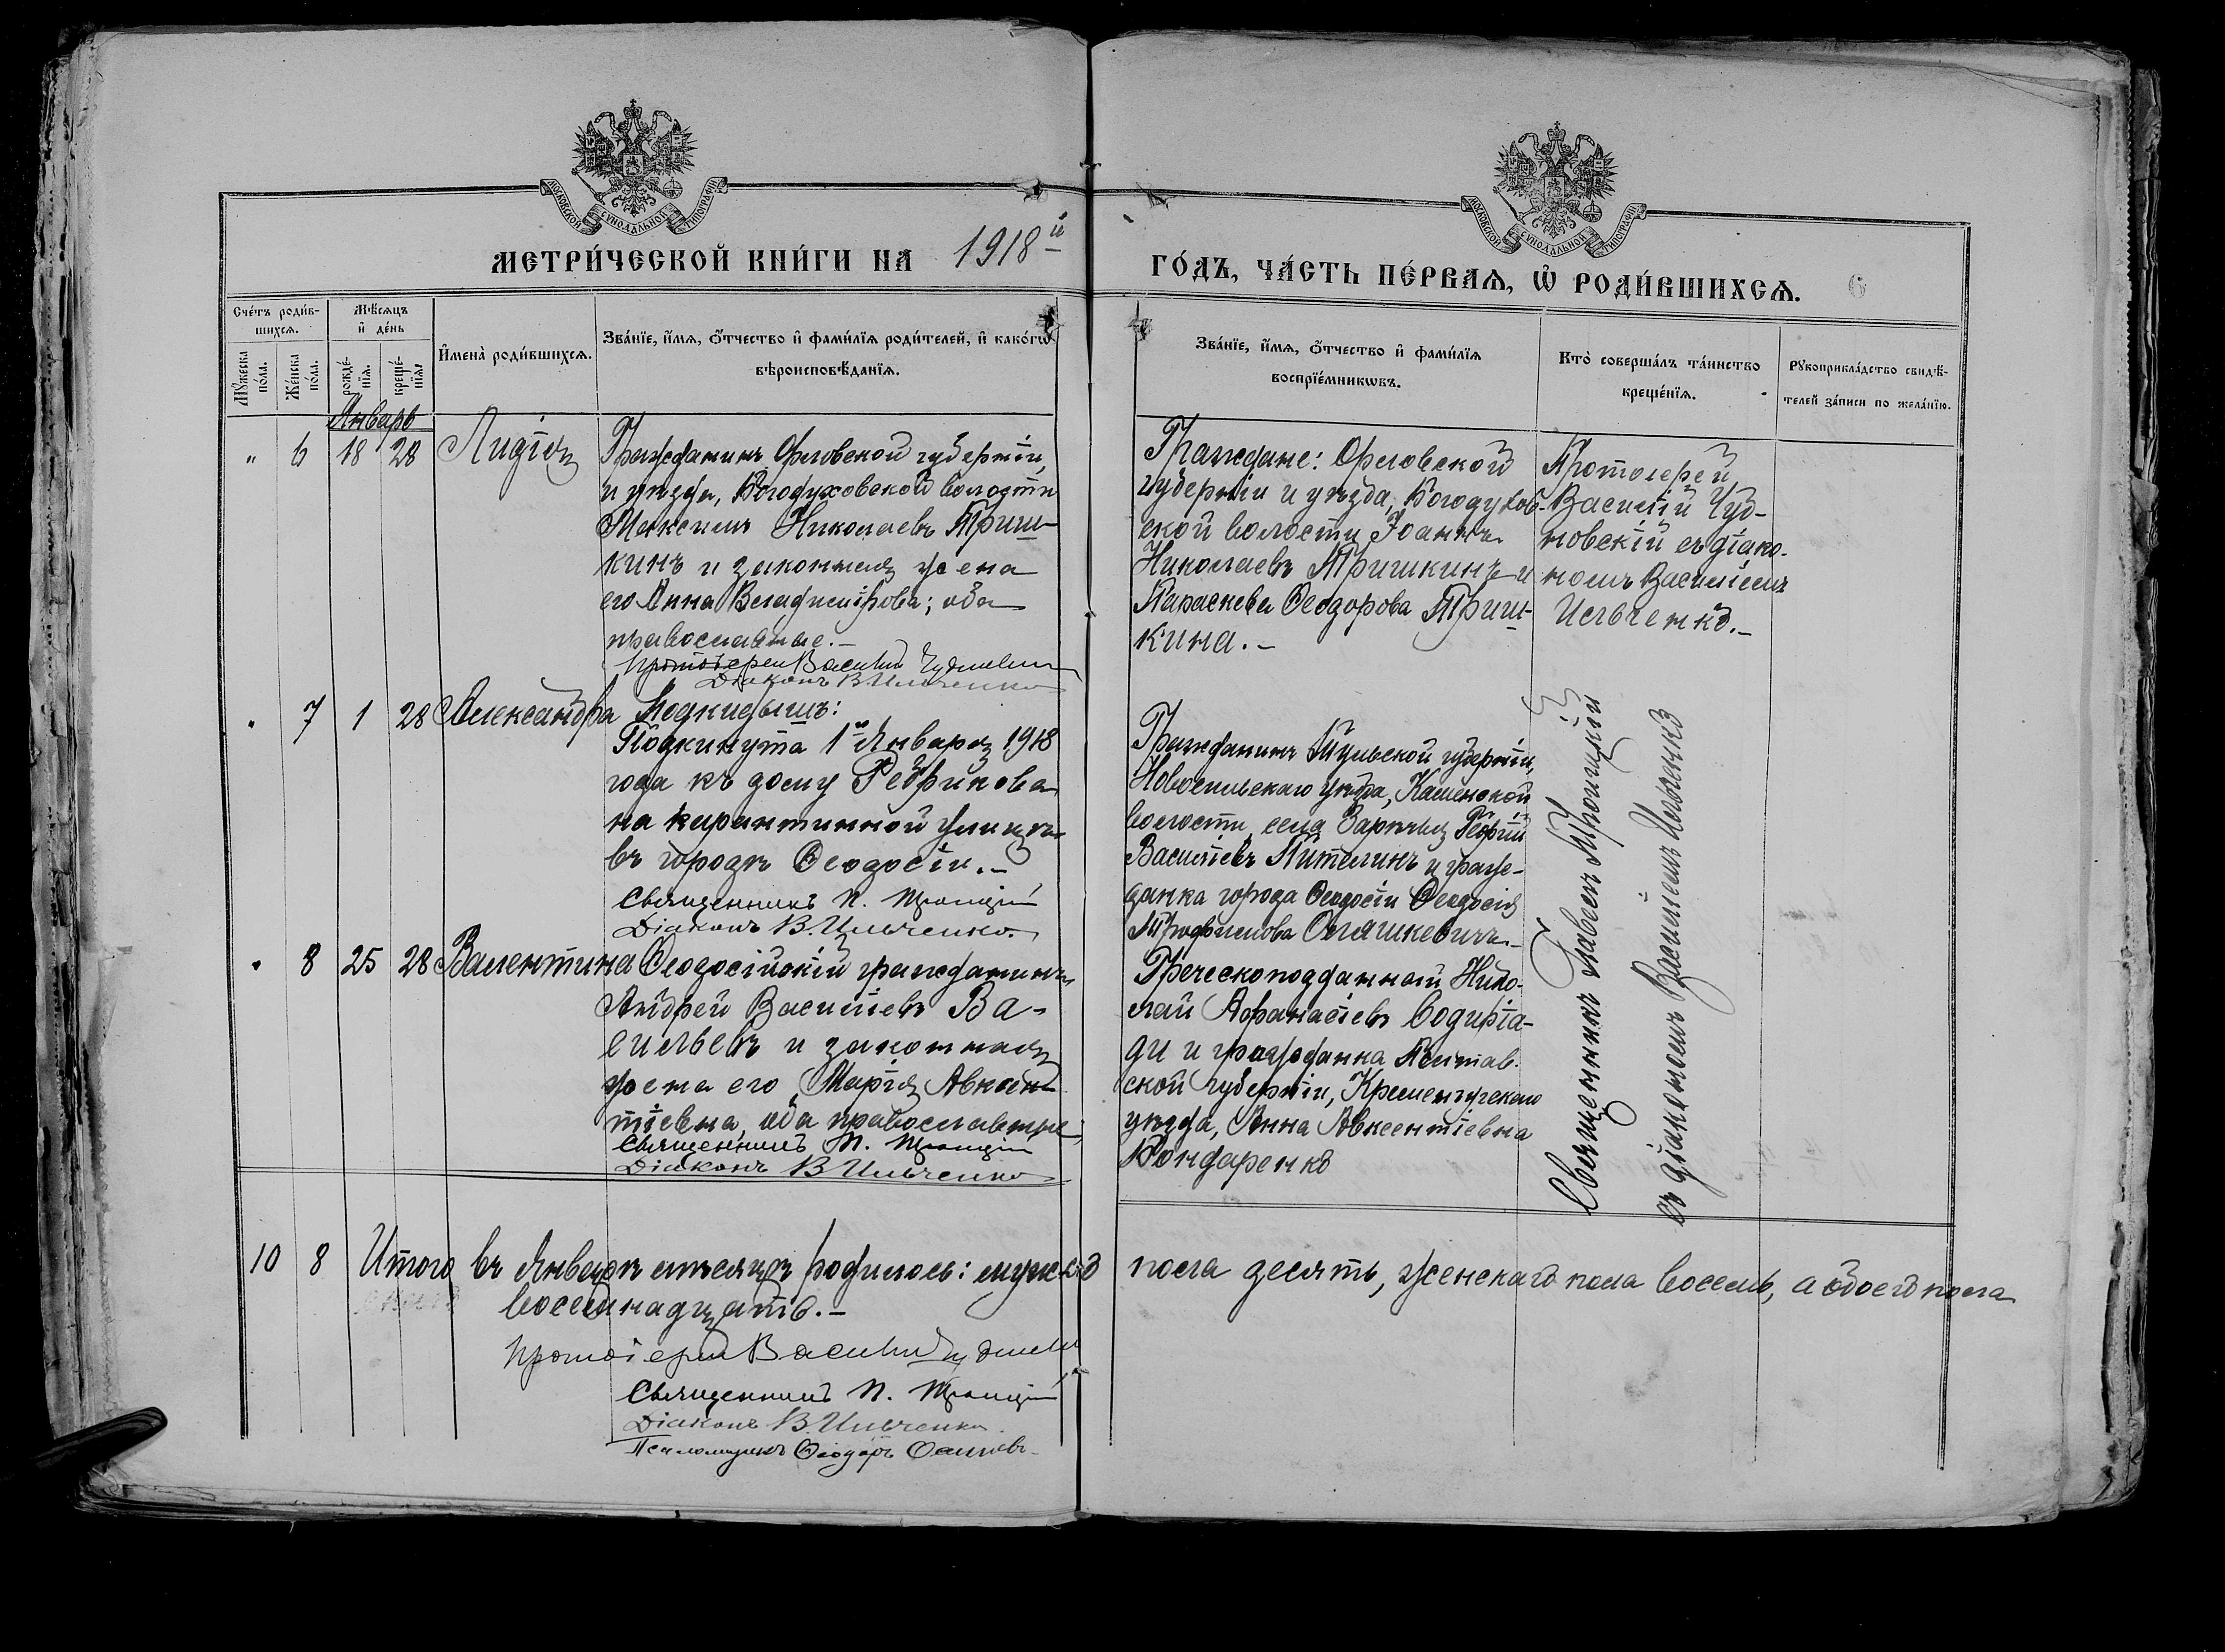 МОСКОВСКОЙ СѴНОДАЛЬНОЙ ТИПОГРАФІИ
МОСКОВСКОЙ СѴНОДАЛЬНОЙ ТИПОГРАФІИ
МЕТРИ́ЧЕСКОЙ КНИ́ГИ НА 1918й
ГО́ДЪ, ЧА́СТЬ ПЕ́РВАѦ, Ѽ РОДИ́ВШИХСѦ. 6
Сче́тъ роди́в-
шихсѧ.
Мѣ́сѧцъ
и҆ де́нь
Мꙋ́жеска по́ла.
Же́нска по́ла.
рожде́-
нїѧ.
креще́-
нїѧ.
И҆мена̀ роди́вшихсѧ.
Зва́нїе, и҆́мѧ, ѻ҆́тчество и҆ фами́лїѧ роди́телей, и҆ како́гѡ
вѣроисповѣ́данїѧ.
Зва́нїе, и҆́мѧ, ѻ҆́тчество и҆ фами́лїѧ
воспрїе́мникѡвъ.
Кто̀ соверша́лъ та́инство
креще́нїѧ.
Рꙋкоприкла́дство свидѣ́-
телей за́писи по жела́нїю.
Январь
" 6 18 28 Лидія
Гражданинъ Орловской губерніи,
и уѣзда, Богодуховской волости
Максимъ Николаевъ Триш-
кинъ и законная жена
его Анна Владимірова; оба
православные.-
Протоіерей Василій Чудновскій
Діаконъ В. Ильченко
Граждане: Орловской
губерніи и уѣзда, Богодухов-
ской волости Іоаннъ
Николаевъ Тришкинъ и
Параскева Ѳеодорова Триш-
кина.-
Протоіерей
Василій Чуд-
новскій съ діако-
номъ Василіемъ
Ильченко.-
" 7 1 28 Александра
Подкидышъ:
Подкинута 1го Января 1918
года къ дому Редрикова
на карантинной улицѣ
въ городѣ Ѳеодосіи.-
Священникъ П. Троицкій
Діаконъ В. Ильченко.
Гражданинъ Тульской губерніи,
Новосильскаго уѣзда, Каменской
волости, села Зарѣчья Георгій
Василіевъ Пителинъ и граж-
данка города Ѳеодосіи Ѳеодосія
Трофимова Оляшкевичъ.-
" 8 25 28 Валентина
Ѳеодосійскій гражданинъ
Андрей Василіевъ Ва-
сильевъ и законная
жена его Марія Авксен-
тіевна, оба православные
Священникъ П. Троицкій
Діаконъ В Ильченко
Греческоподданный Нико-
лай Афанасіевъ Водиріа-
ди и гражданка Полтав-
ской губерніи, Кременчугскаго
уѣзда, Анна Авксентіевна
Бондаренко
Священникъ Павелъ Троицкій
съ діакономъ Василіемъ Ильченко
10 8 Итого въ Январѣ мѣсяцѣ родилось: мужского пола десять, женскаго пола восемь, а обоего пола
восемнадцать.-
Протоіерей Василій Чудновскій
Священникъ П. Троицкій
Діаконъ В. Ильченко.
Псаломщикъ Ѳеодоръ